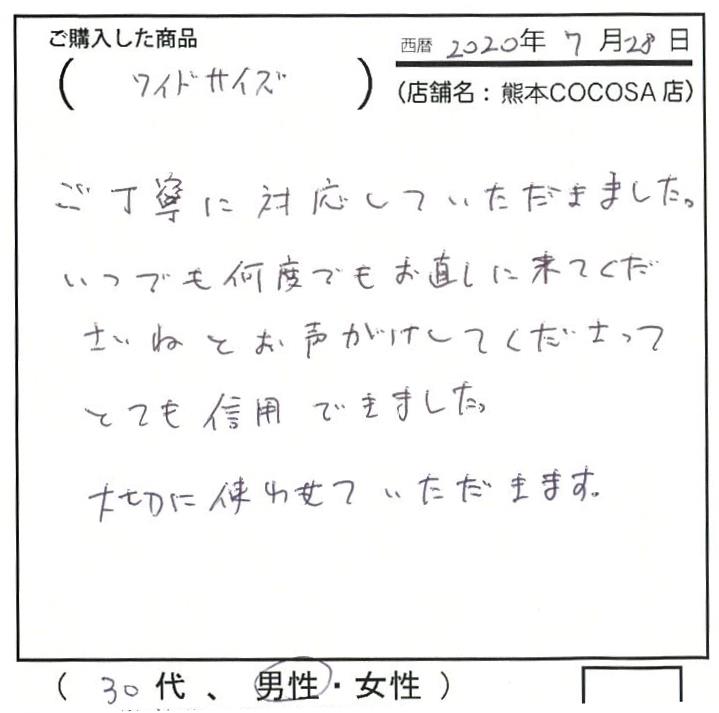 ご購入した商品
西暦 2020年 7月28日
(ワイドサイズ)
(店舗名：熊本COCOSA店)
ご丁寧に対応していただきました。
いつでも何度でもお直しに来てくだ
さいねとお声がけしてくださって
とても信用できました。
大切に使わせていただきます。
(30代、男性・女性)